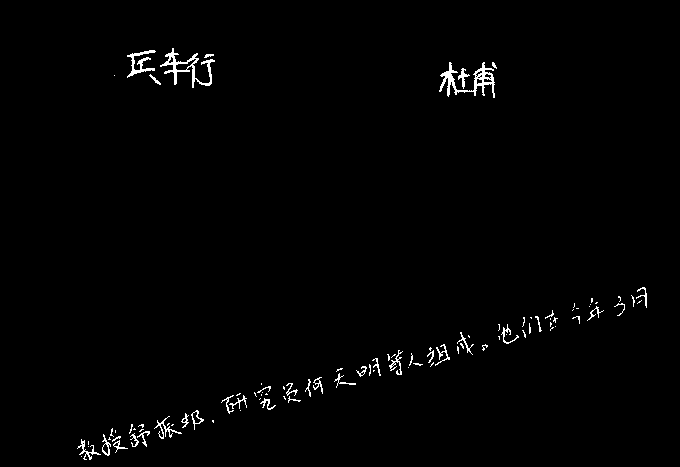 兵车行 杜甫
教授舒振邦,研究员何天明等人组成。他们在今年3月